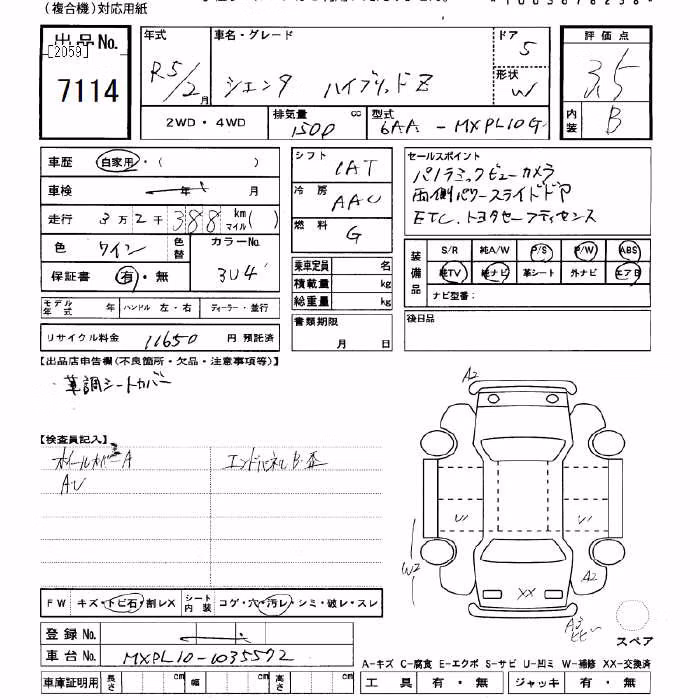 (複合機)対応用紙
出品No.
[2059]
7114
年式 R5/2月
車名・グレード シエンタ ハイブリッドZ
ドア 5
形状 W
2WD・4WD
排気量 1500 cc
型式 6AA-MXPL10G
評価点 3.5
内装 B
車歴 自家用・( )
車検 年 月
走行 3万2千388 km マイル( )
色 ワイン
色替
カラーNo. 3U4
保証書 有・無
モデル年式 年
ハンドル 左・右
ディーラー・並行
リサイクル料金 11650 円 預託済
シフト IAT
冷房 AAC
燃料 G
乗車定員 名
積載量 kg
総重量 kg
書類期限 月 日
セールスポイント
パノラミックビューカメラ
両側パワースライドドア
ETC.トヨタセーフティセンス
装備品
S/R 純A/W P/S P/W ABS
純TV 純ナビ 革シート 外ナビ エアB
ナビ型番:
後日品
【出品店申告欄(不良箇所・欠品・注意事項等)】
・革調シートカバー
【検査員記入】
ホイールカバーA
AU
エンドパネルB・歪
A2
U1
U1
W2
A2
XX
A3
スペア
FW キズ・トビ石・割レX
シート内装 コゲ・穴・汚レ・シミ・破レ・スレ
登録No.
車台No. MXPL10-1035572
車庫証明用 長さ cm 幅 cm 高さ cm
A-キズ C-腐食 E-エクボ S-サビ U-凹ミ W-補修 XX-交換済
工具 有・無 ジャッキ 有・無